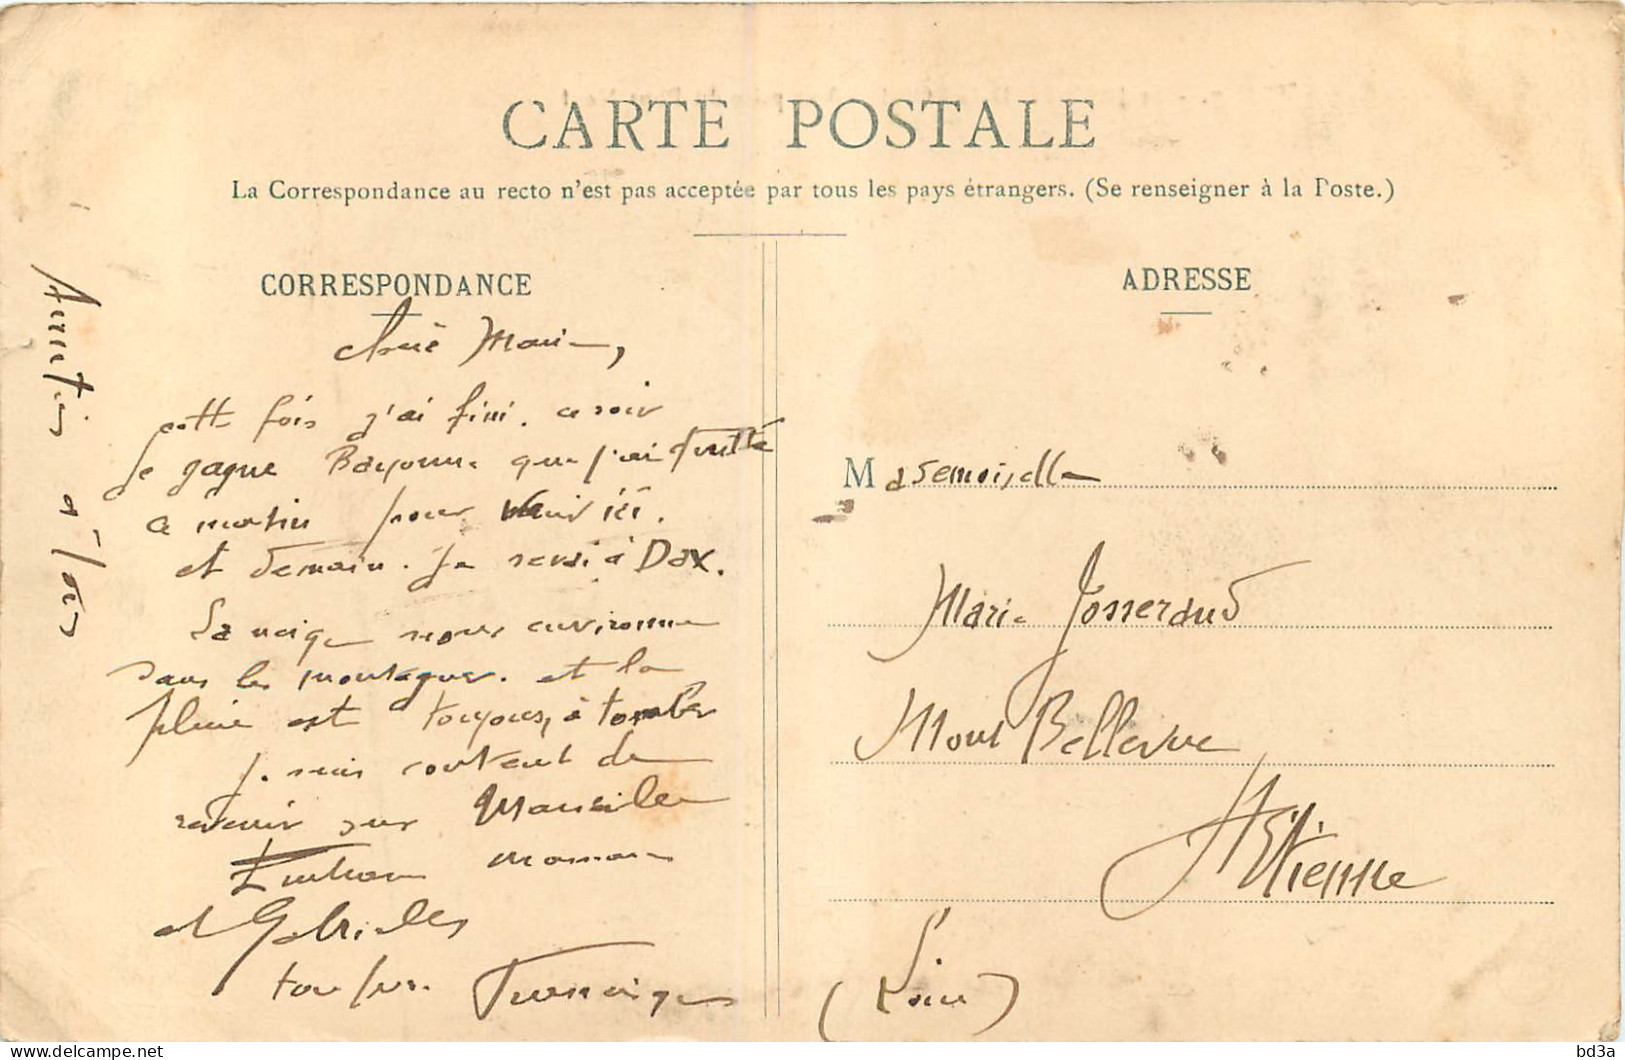 CARTE POSTALE
La Correspondance au recto n'est pas acceptée par tous les pays étrangers. (Se renseigner à la Poste.)
CORRESPONDANCE
chère Marie,
cette fois j'ai fini. ce soir
Je gagne Bayonne que j'ai quitté
ce matin pour venir ici.
et demain. je serai à Dax.
La neige nous environne
dans les montagnes. et la
pluie est toujours, à tomber
je suis content de
revenir sur Marseille
maman
et Gabrielle
ADRESSE
Mademoiselle
Marie Josserand
Mont Bellevue
St Etienne
(Loire)
bd3a